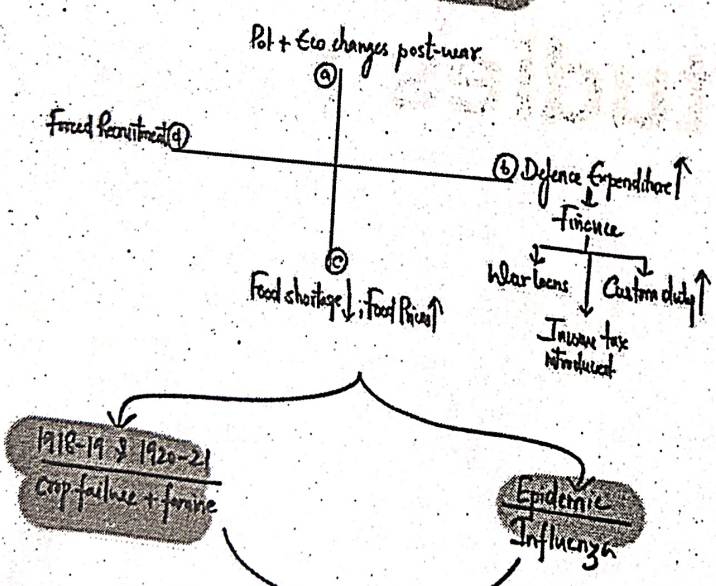 Pol + Eco changes post-war
ⓐ
Forced Recruitment ⓓ
ⓑ Defence Expenditure ↑
↓
Finance
War loans
Custom duty ↑
Income tax
introduced
ⓒ
Food shortage ↓ ; Food Prices ↑
1918-19 & 1920-21
Crop-failure + famine
Epidemic
Influenza